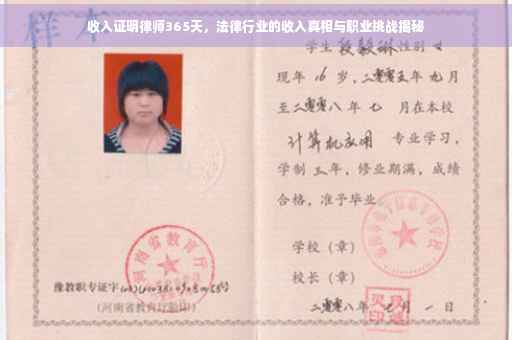 收入证明律师365天，法律行业的收入真相与职业挑战揭秘
样本
学生 段毅琳 性别 女
现年 16 岁，二零零五年 九月
至二零零八 年 七 月在本校
计算机应用 专业学习，
学制 三 年，修业期满，成绩
合格，准予毕业
学校（章）
校长（章）
豫教职专证字
（河南省教育厅验印）
二零零八年 七 月 一 日
河南省教育厅